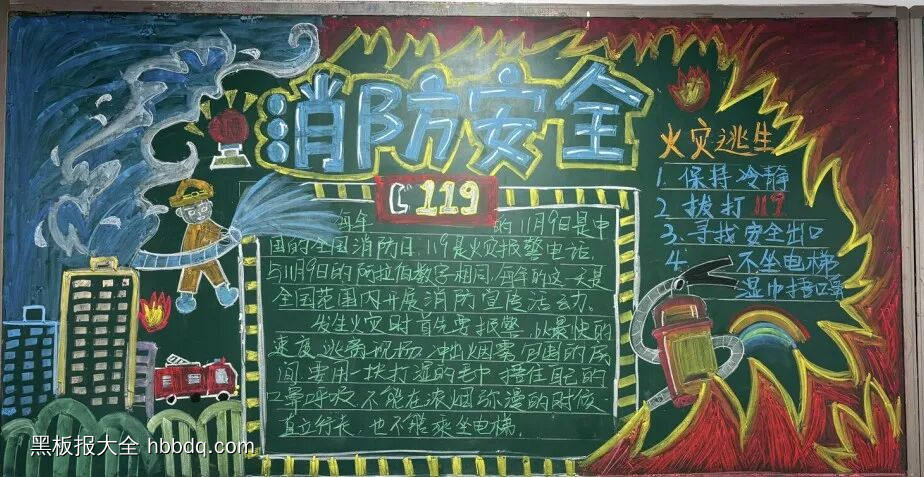 消防安全
119
每年的11月9日是中
国的全国消防日，119是火灾报警电话，
与11月9日的阿拉伯数字相同，每年的这一天是
全国范围内开展消防宣传活动。
发生火灾时首先要报警，以最快的
速度逃离现场，冲出烟雾
间要用一块打湿的毛巾捂住自己的
口鼻呼吸，不能在浓烟弥漫的时候
直立行走，也不能乘坐电梯。
火灾逃生
1.保持冷静
2 拨打119
3.寻找安全出口
4.不坐电梯
湿巾捂口鼻
黑板报大全 hbbdq.com